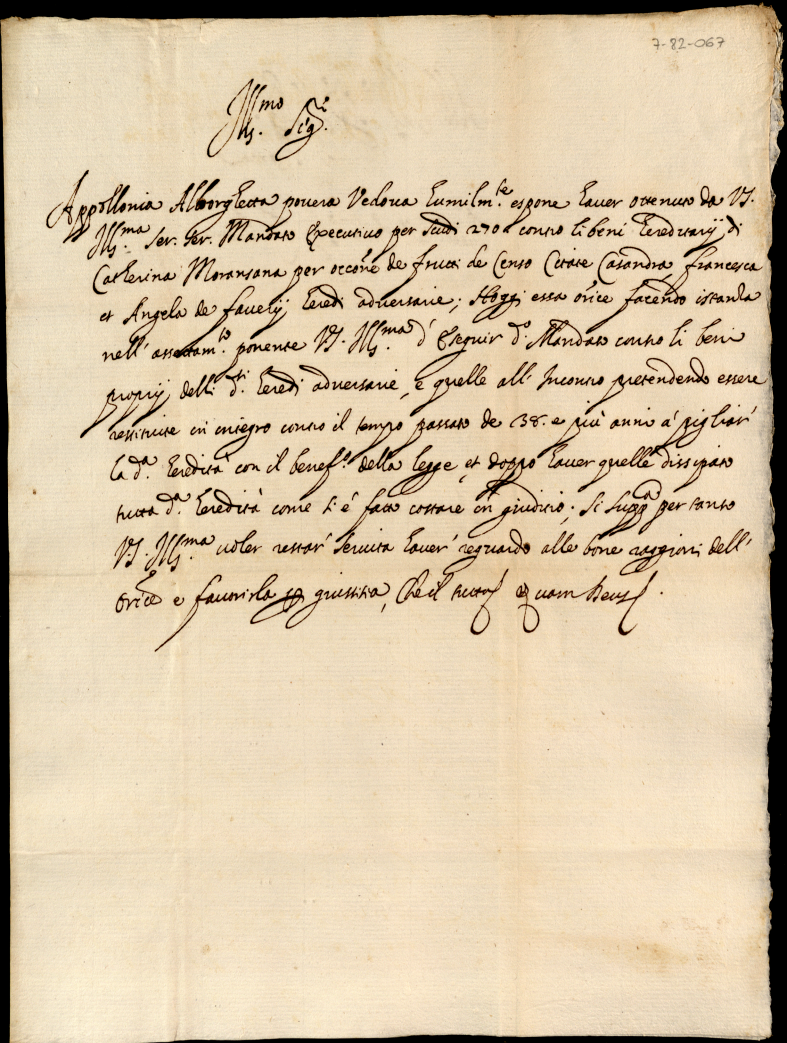 7-82-067
Ill.mo Sig.r
Appollonia Alborghetta povera Vedova humilm.te espone haver ottenuto da VS.
Ill.ma ser. ser. Mandato Executivo per scudi 270 contro li beni hereditarij di
Catherina Moransana per occ.ne de frutti de Censo Citate Casandra francesca
et Angela de faverij heredi adversarie; Hoggi essa ōrice facendo istanza
nell' assettam.to ponente VS. Ill.ma d' Eseguir d.o Mandato contro li beni
proprij delli d.ti heredi adversarie, e quelle all' Incontro pretendendo essere
restituite in integro contro il tempo passato de 38. e più anni a' pigliar'
la d.a heredità con il benef.o della legge, et doppo haver quelle dissipato
tutta d.a heredità come si é fatto costare in giuditio; Si supp.a per tanto
VS. Ill.ma voler restar' servita haver' reguardo alle bone raggioni dell'
ōrice e favorirla per giustitia, Che il tutto quam Deus